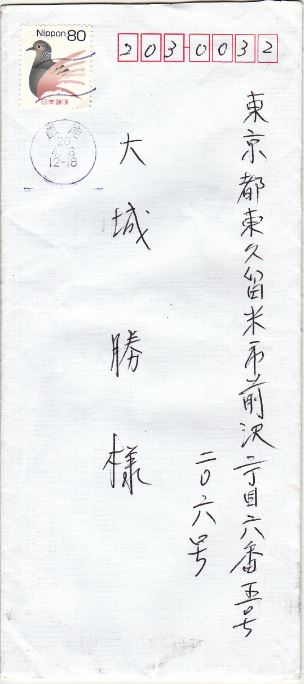 Nippon 80
日本郵便
20
12-18
203-0032
東京都東久留米市前沢二丁目六番五号
二〇六号
大城勝様